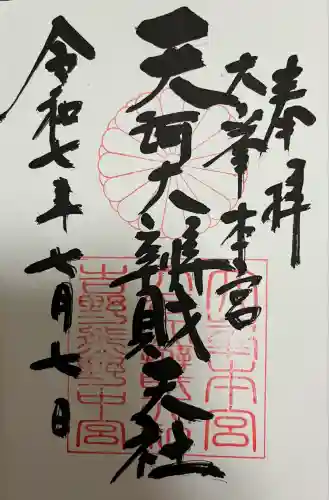 奉拝
大峯本宮
天河大辨財天社
令和七年七月七日